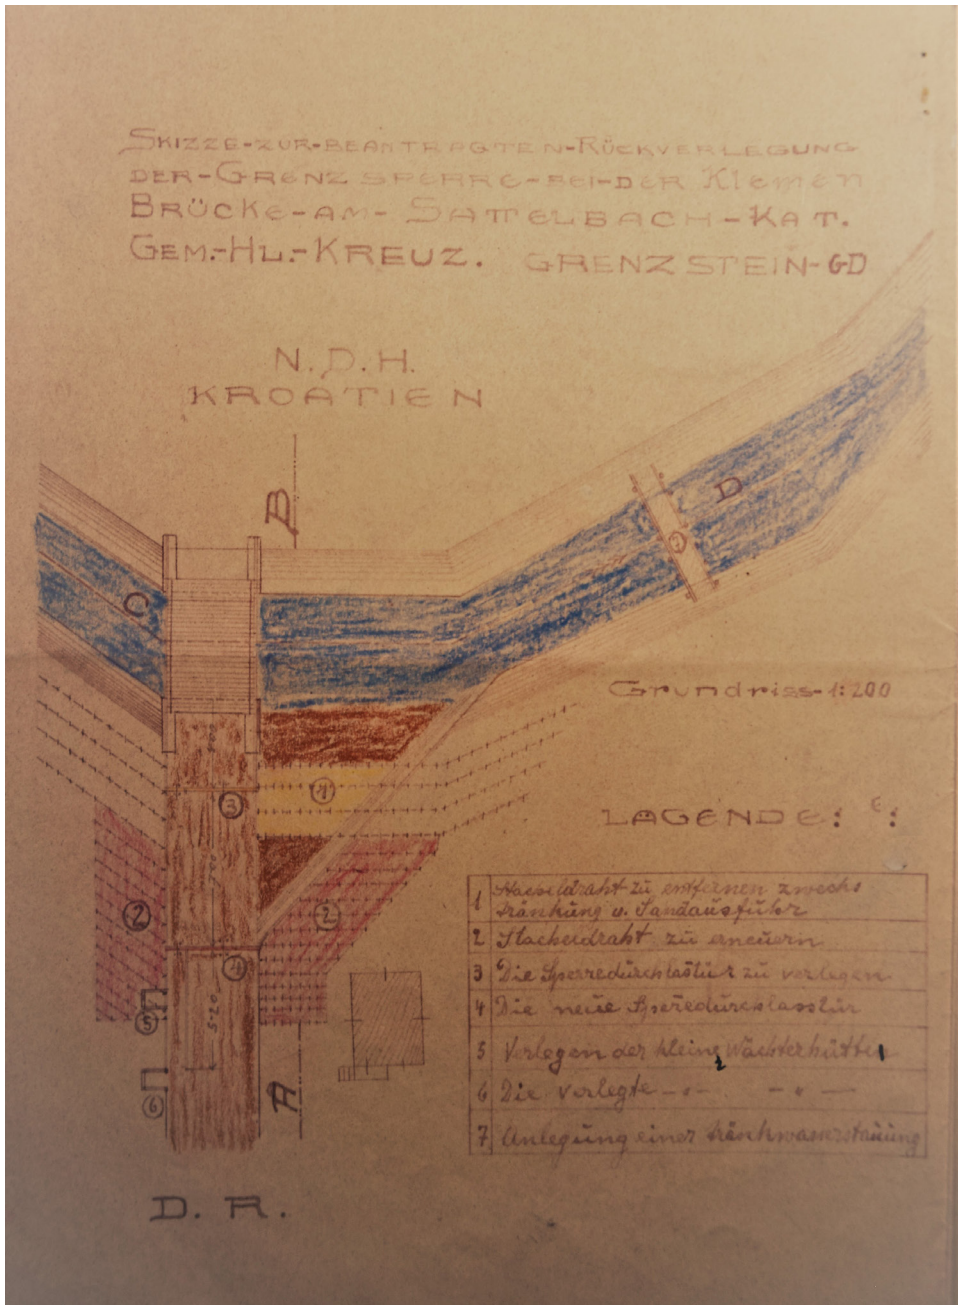 SKIZZE-ZUR-BEANTRAGTEN-RÜCKVERLEGUNG
DER-GRENZSPERRE-BEI-DER Klemen
BRÜCKE-AM-SATTELBACH-KAT.
GEM.-HL.-KREUZ. GRENZSTEIN-GD
N.D.H.
KROATIEN
B
D
7
C
Grundriss-1:200
1
3
LAGENDE: E:
2
2
4
5
6
A
1 Stacheldraht zu entfernen zwecks
Tränkung u. Sandausfuhr
2 Stacherdraht zu erneuern
3 Die Sperredurchlastür zu verlegen
4 Die neue Speredurchlasstür
5 Verlegen der kleinz Wächterhütte
6 Die verlegte -„- -„-
7 Anlegung einer
D. R.